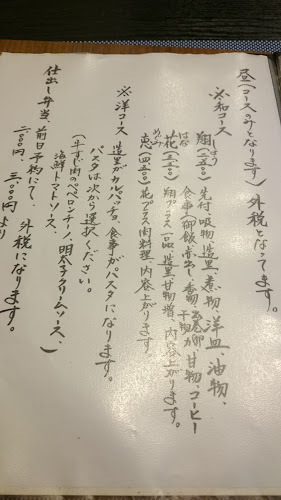 昼(コースのみとなります) 外税となってます。
※和コース
翔(二五〇〇) 先付、吸物、造里、煮物、洋皿、油物、
しょう
食事(御飯、赤出し、香物、出巻卵、干物)、甘物、コーヒー
花(三五〇〇) 翔プラス一品、造里、甘物増、内容上がります。
はな
恵(四五〇〇) 花プラス肉料理、内容上がります。
めぐみ
※洋コース
造里がカルパッチョ、食事がパスタになります。
パスタは次から選択ください。
(牛すじ肉のペペロンチーノ、明太子クリームソース、
海鮮トマトソース、)
仕出し弁当、前日予約にて、
二〇〇〇円、三〇〇〇円より
外税になります。